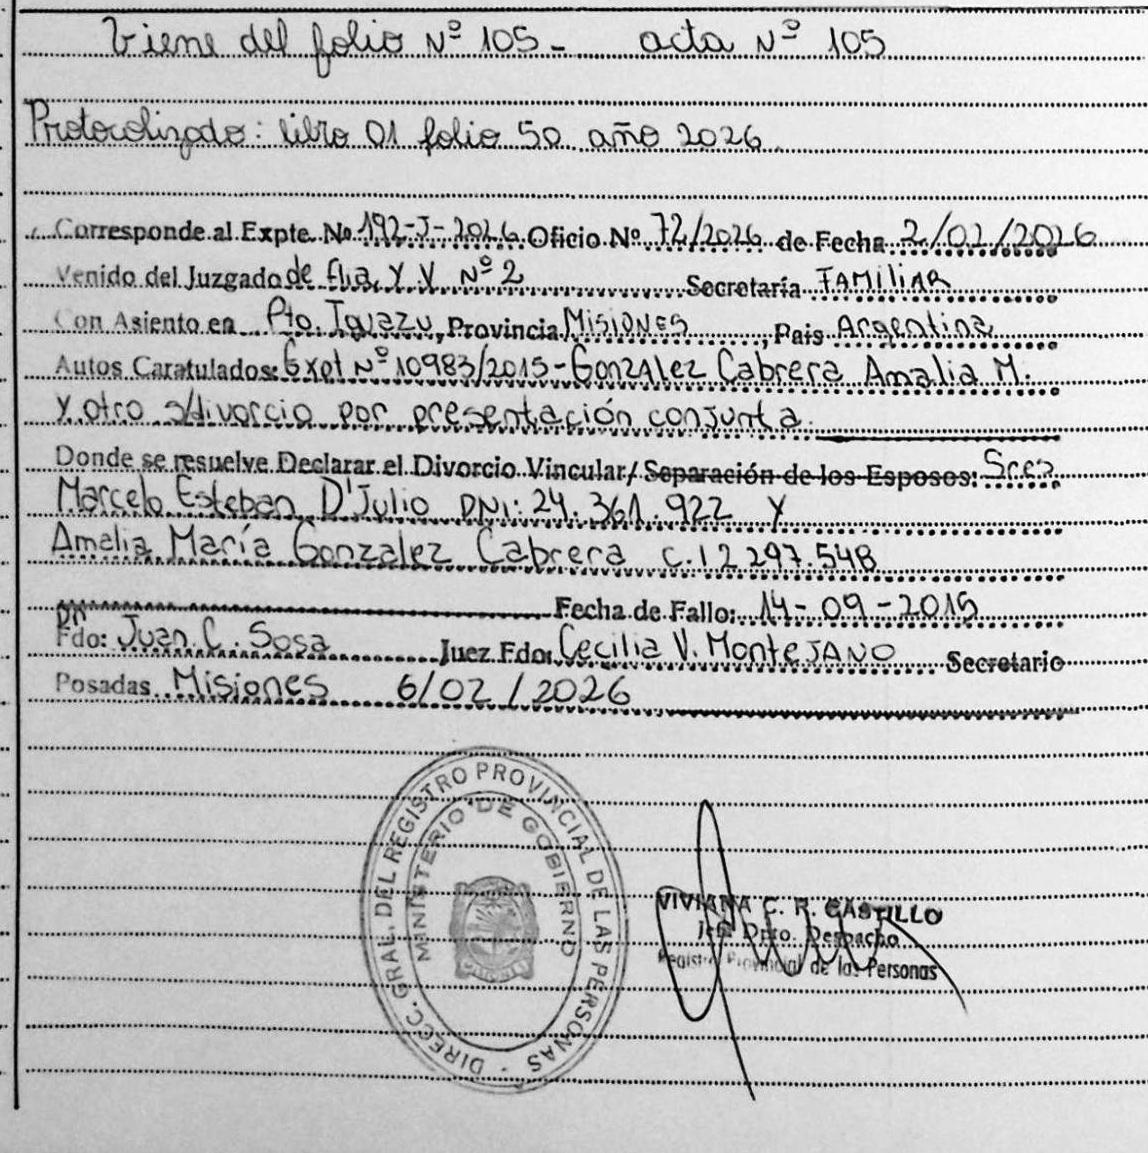 Viene del folio Nº 105 - acta Nº 105
Protocolizado: libro 01 folio 50 año 2026.
Corresponde al Expte. Nº 192-J-2026 Oficio Nº 72/2026 de Fecha 2/02/2026
Venido del Juzgado de flia. y V. Nº 2 Secretaría FAMiliAR
Con Asiento en Pto. Iguazu, Provincia MISIONES, Pais Argentina
Autos Caratulados: Expt Nº 10983/2015-Gonzalez Cabrera Amalia M.
y otro s/divorcio por presentación conjunta.
Donde se resuelve Declarar el Divorcio Vincular/ Separación de los Esposos: Sres
Marcelo Esteban D'Julio DNI: 24.361.922 y
Amalia María Gonzalez Cabrera C.I 2.297.548
Fecha de Fallo: 14-09-2015
Fdo: Juan C. Sosa Juez Fdo: Cecilia V. MonteJANO Secretario
Posadas Misiones 6/02/2026
DIRECC. GRAL. DEL REGISTRO PROVINCIAL DE LAS PERSONAS -
MINISTERIO DE GOBIERNO
VIVIANA C. R. CASTILLO
Jefa Dpto. Despacho
Registro Provincial de las Personas